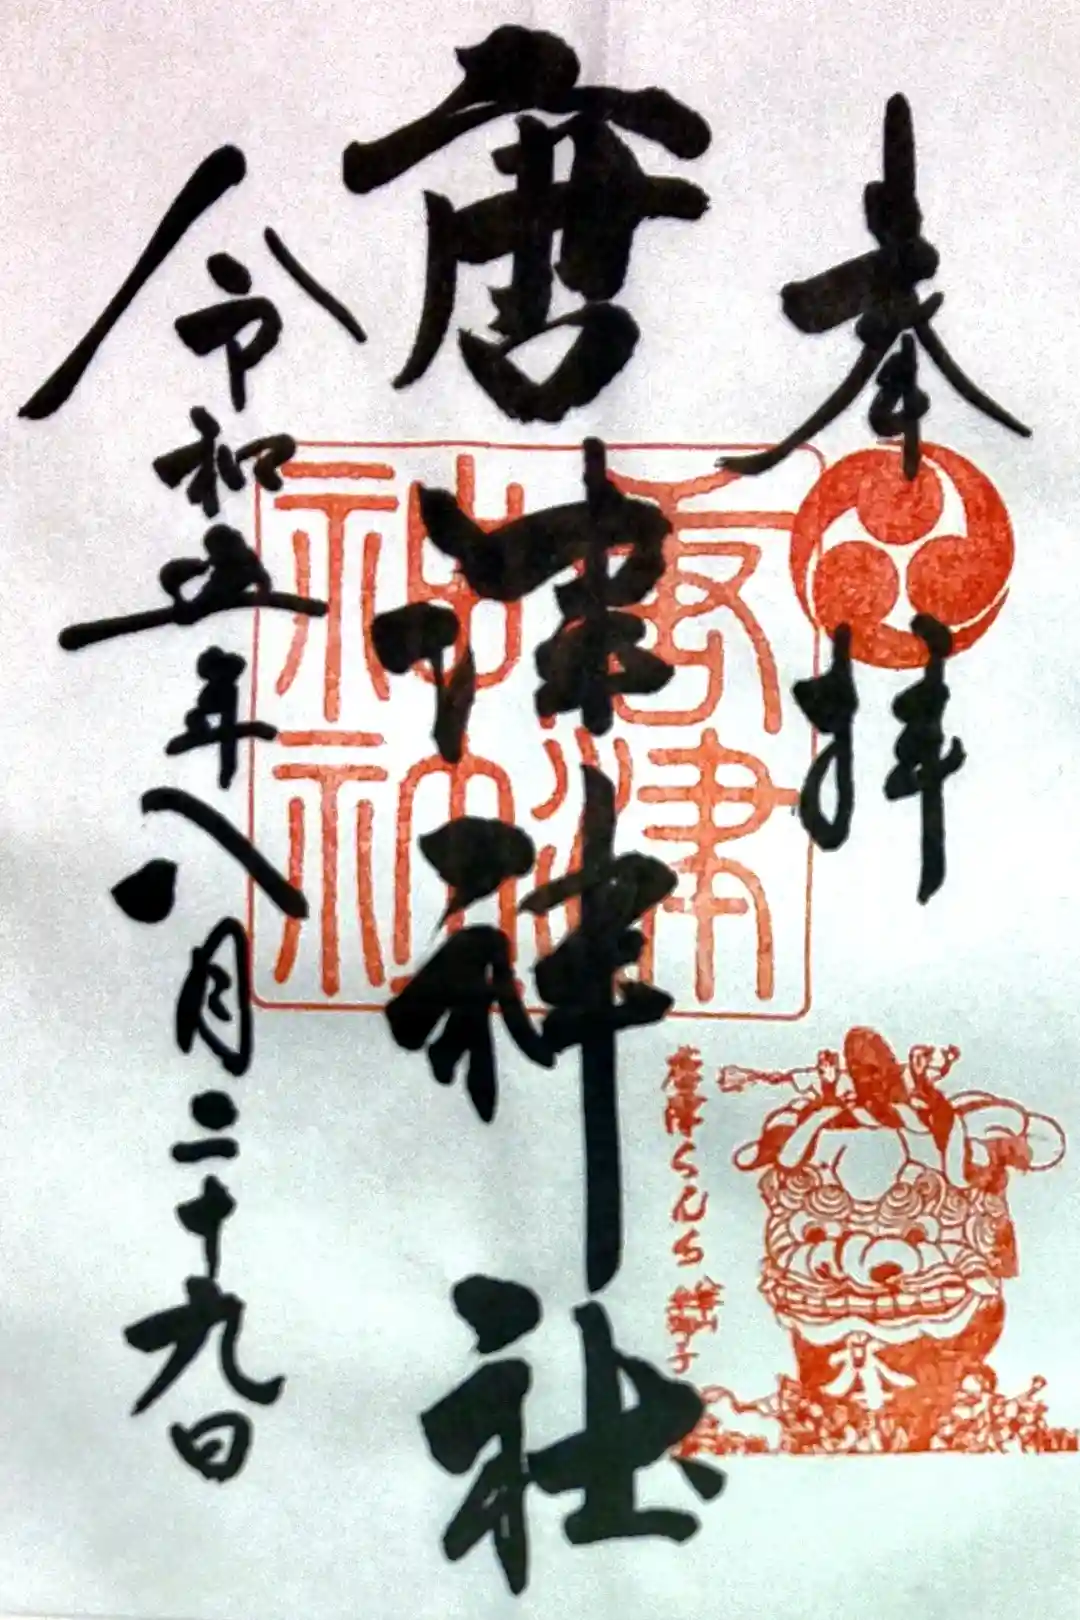 奉拝
唐津神社
令和五年八月二十九日
唐津神社
唐津くんち 獅子